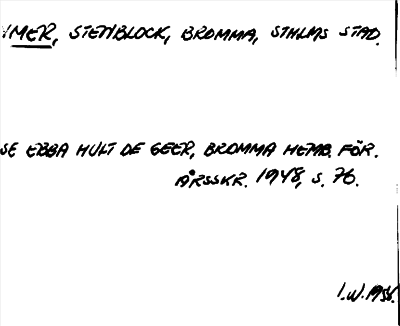 YMER, STENBLOCK, BROMMA, STHLMS STAD.
SE EBBA HULT DE GEER, BROMMA HEMB. FÖR.
ÅRSSKR. 1948, S. 76.
I.W. 1958.